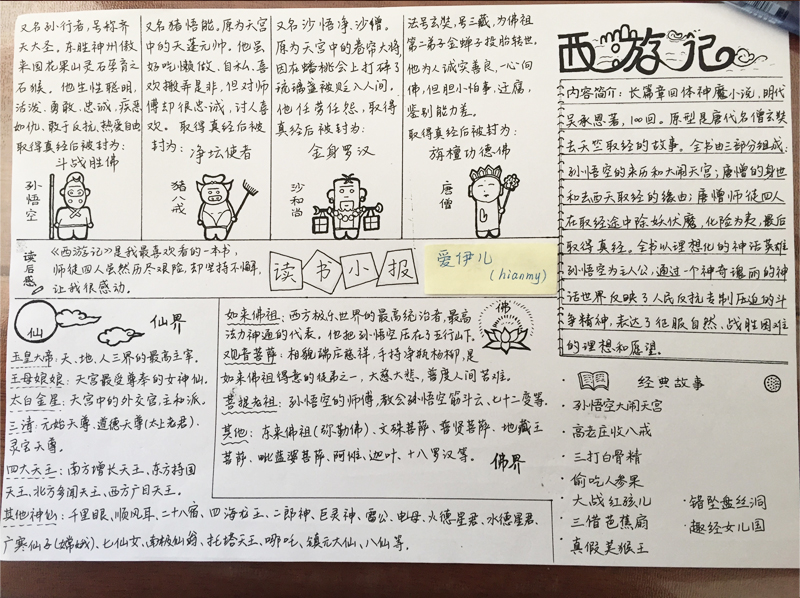 又名孙行者,号称齐
天大圣。东胜神州傲
来国花果山灵石孕育之
石猴。他生性聪明、
活泼、勇敢、忠诚、疾恶
如仇、敢于反抗、热爱自由
取得真经后被封为:
斗战胜佛
孙悟空
又名猪悟能。原为天宫
中的天蓬元帅。他虽
好吃懒做、自私、喜
欢搬弄是非,但对师
傅却很忠诚,讨人喜
欢。取得真经后被
封为:净坛使者
猪八戒
又名沙悟净、沙僧。
原为天宫中的卷帘大将,
因在蟠桃会上打碎了
琉璃盏被贬入人间。
他任劳任怨,取得
真经后被封为:
金身罗汉
沙和尚
法号玄奘,号三藏,为佛祖
第二弟子金蝉子投胎转世。
他为人诚实善良,一心向
佛,但胆小怕事、迂腐,
鉴别能力差。
取得真经后被封为:
旃檀功德佛
唐僧
西游记
内容简介:长篇章回体神魔小说,明代
吴承恩著,100回。原型是唐代名僧玄奘
去天竺取经的故事。全书由三部分组成:
孙悟空的来历和大闹天宫;唐僧的身世
和去西天取经的缘由;唐僧师徒四人
在取经途中除妖伏魔,化险为夷,最后
取得真经。全书以理想化的神话英雄
孙悟空为主人公,通过一个神奇瑰丽的神
话世界反映了人民反抗专制压迫的斗
争精神,表达了征服自然、战胜困难
的理想和愿望。
读后感
《西游记》是我最喜欢看的一本书,
师徒四人虽然历尽艰险,却坚持不懈,
让我很感动。
读书小报
爱伊儿
(hianmy)
仙
仙界
玉皇大帝:天、地、人三界的最高主宰。
王母娘娘:天宫最受尊奉的女神仙。
太白金星:天宫中的外交官,主和派。
三清:元始天尊、道德天尊(太上老君)、
灵宝天尊。
四大天王:南方增长天王、东方持国
天王、北方多闻天王、西方广目天王。
其他神仙:千里眼、顺风耳、二十八宿、四海龙王、二郎神、巨灵神、雷公、电母、火德星君、水德星君、
广寒仙子(嫦娥)、七仙女、南极仙翁、托塔天王、哪吒、镇元大仙、八仙等。
如来佛祖:西方极乐世界的最高统治者,最高
法力神通的代表。他把孙悟空压在五行山下。
观音菩萨:相貌端庄慈祥,手持净瓶杨柳,是
如来佛祖得意的徒弟之一,大慈大悲,普度人间苦难。
菩提老祖:孙悟空的师傅,教会孙悟空筋斗云、七十二变等。
其他:东来佛祖(弥勒佛)、文殊菩萨、普贤菩萨、地藏王
菩萨、毗蓝婆菩萨、阿傩、迦叶、十八罗汉等。
佛
佛界
经典故事
孙悟空大闹天宫
高老庄收八戒
三打白骨精
偷吃人参果
大战红孩儿
三借芭蕉扇
真假美猴王
错坠盘丝洞
趣经女儿国